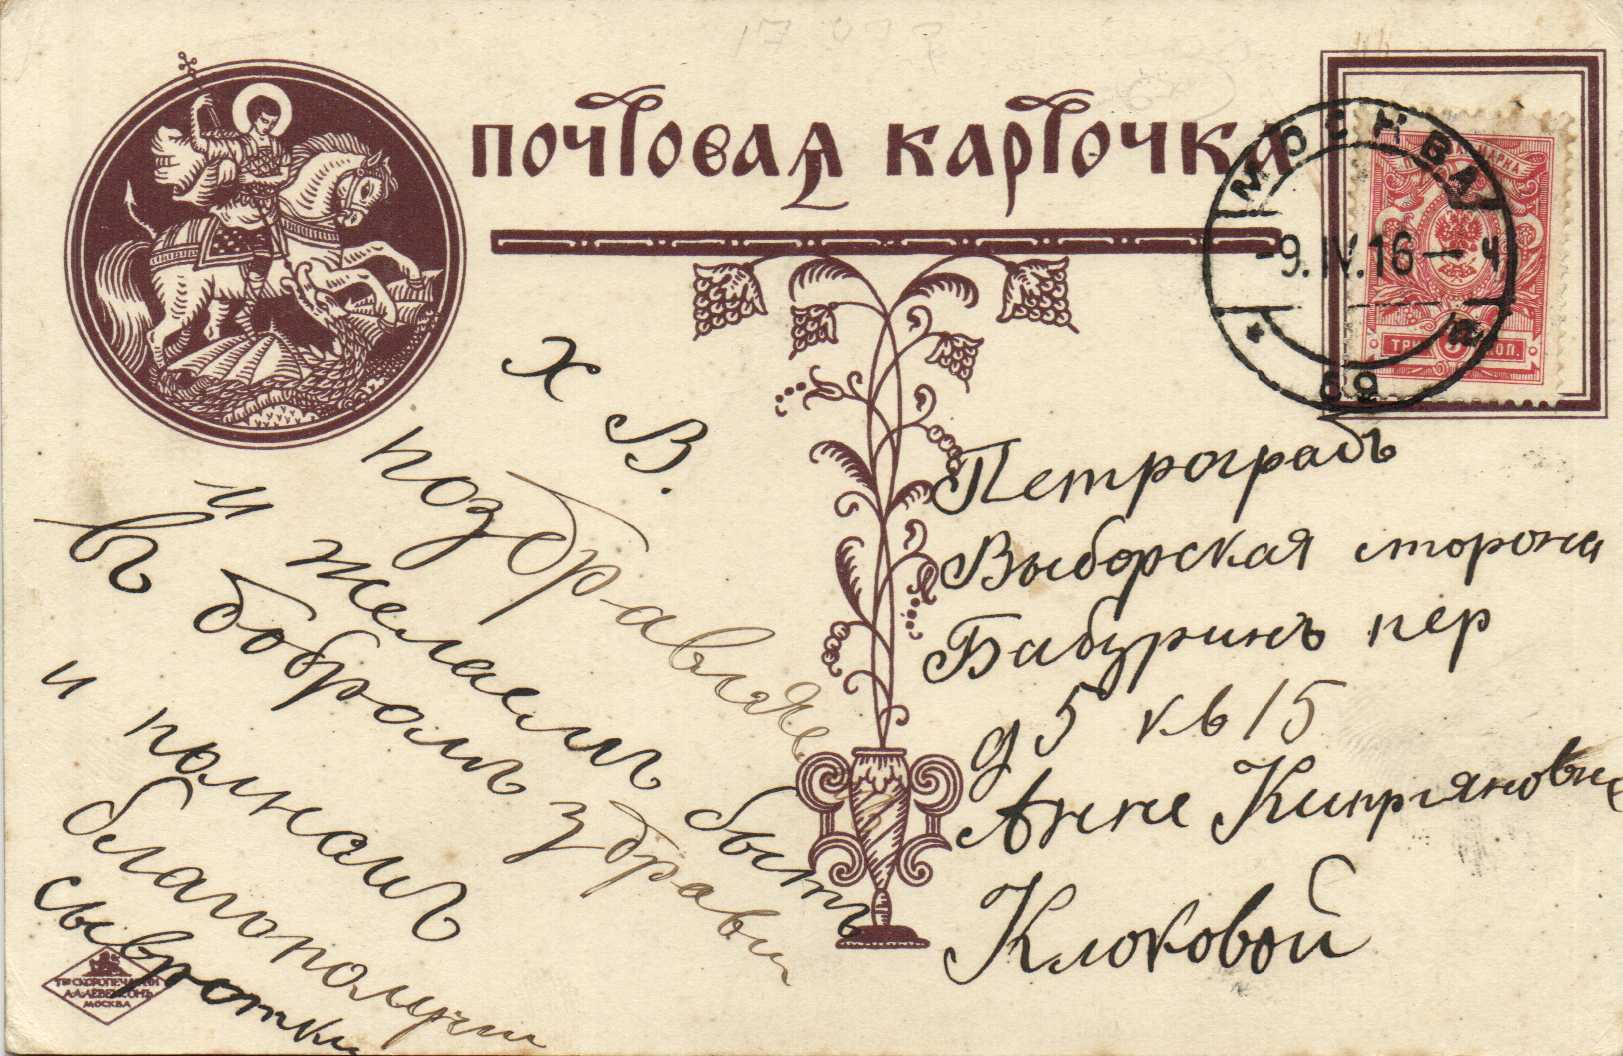 ПОЧТОВАЯ КАРТОЧКА
МОСКВА
9.IV.16 — Ч
69
ТРИ КОП.
Х В.
поздравляе
и желаемъ быть
въ добромъ здравіи
и полномъ
благополучіи
сывротки
Петроградъ
Выборская сторона
Бабуринъ пер
д 5 кв 15
Анне Кипріяновны
Клоковой
Т-ВО СКОРОПЕЧАТНИ
А.А.ЛЕВЕНСОНЪ
МОСКВА